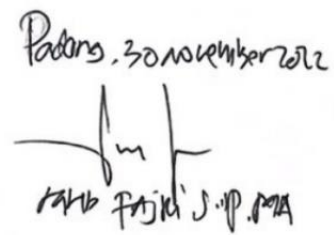 Padang, 30 November 2022
Fajri S.IP. MA